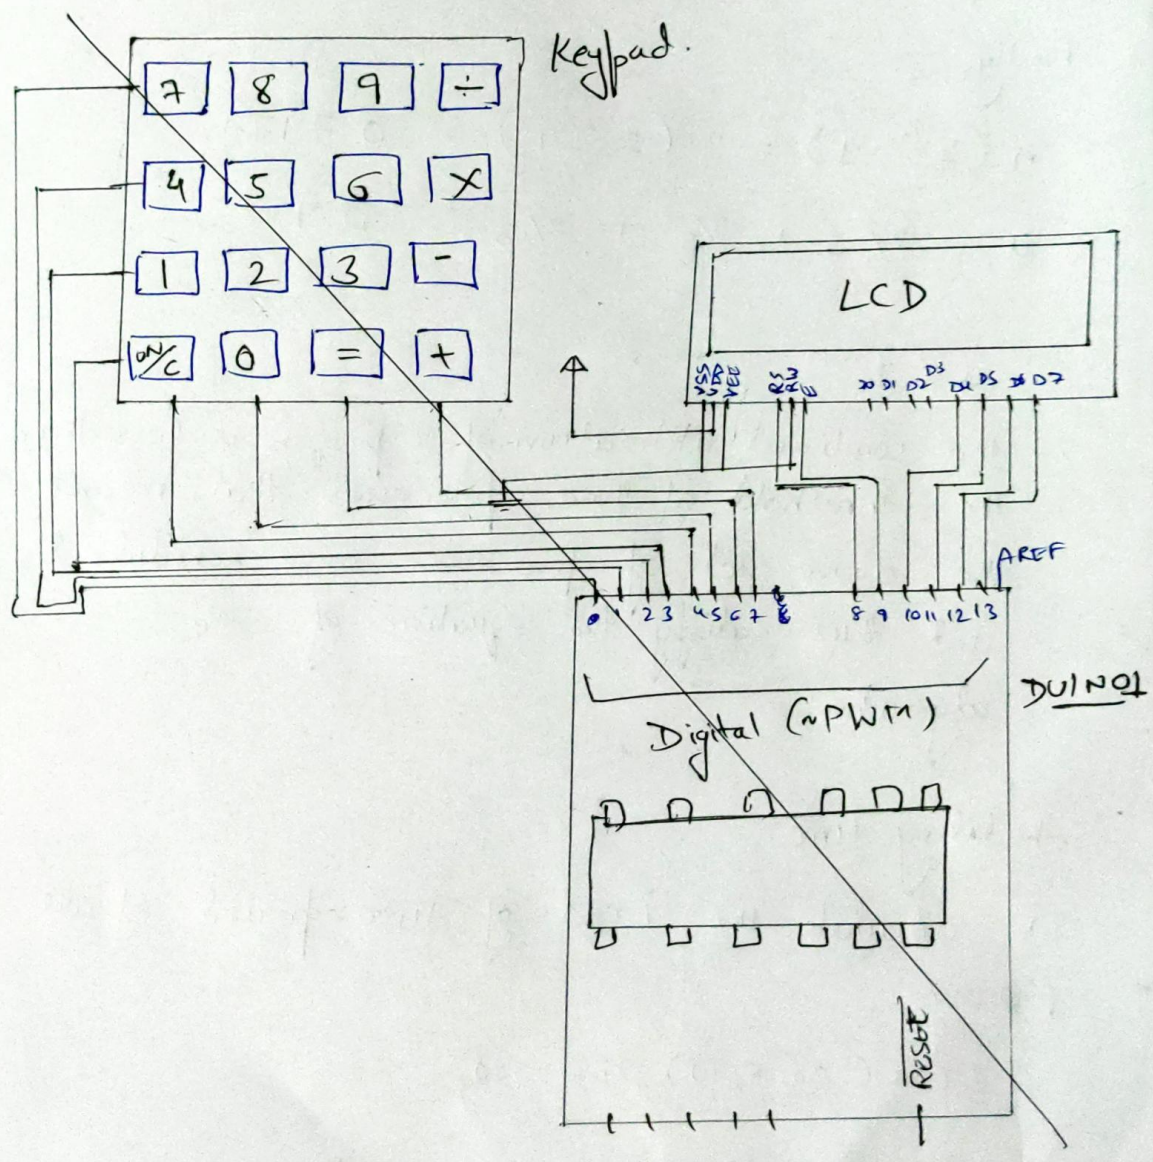 Keypad.
7 8 9 ÷
4 5 6 X
1 2 3 -
ON/C 0 = +
LCD
VSS VDD VEE RS RW E D0 D1 D2 D3 D4 D5 D6 D7
AREF
0 1 2 3 4 5 6 7 8 9 10 11 12 13
DUINO1
Digital (~PWM)
RESET